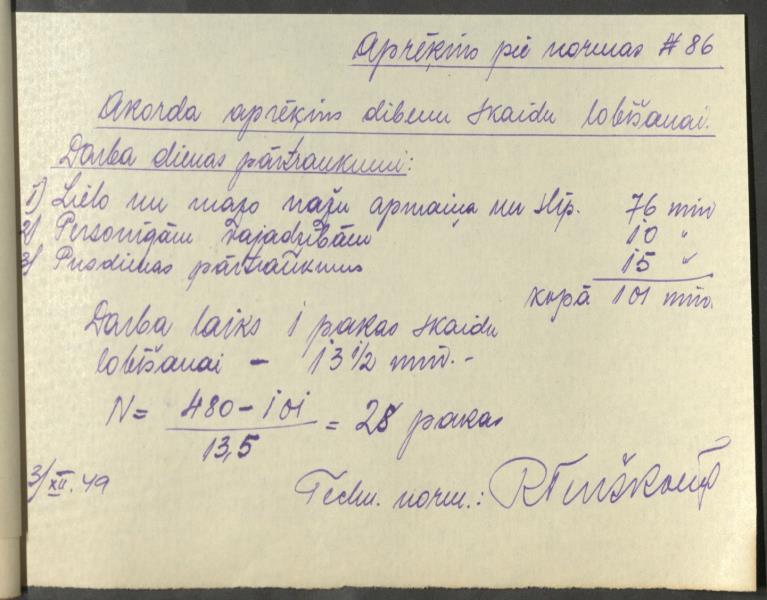 Aprēķins pie normas # 86
Akorda aprēķins dibenu skaidu lobīšanai.
Darba dienas pārtraukumi:
1) Lielo un mazo nažu apmaiņa un slīp. 76 min
2) Personīgām vajadzībām 10 "
3) Pusdienas pārtraukums 15 "
kopā 101 min.
Darba laiks 1 pakas skaidu
lobīšanai - 13 1/2 min. -
N = 480 - 101 / 13,5 = 28 pakas
3/XII. 49
Techn. norm.: